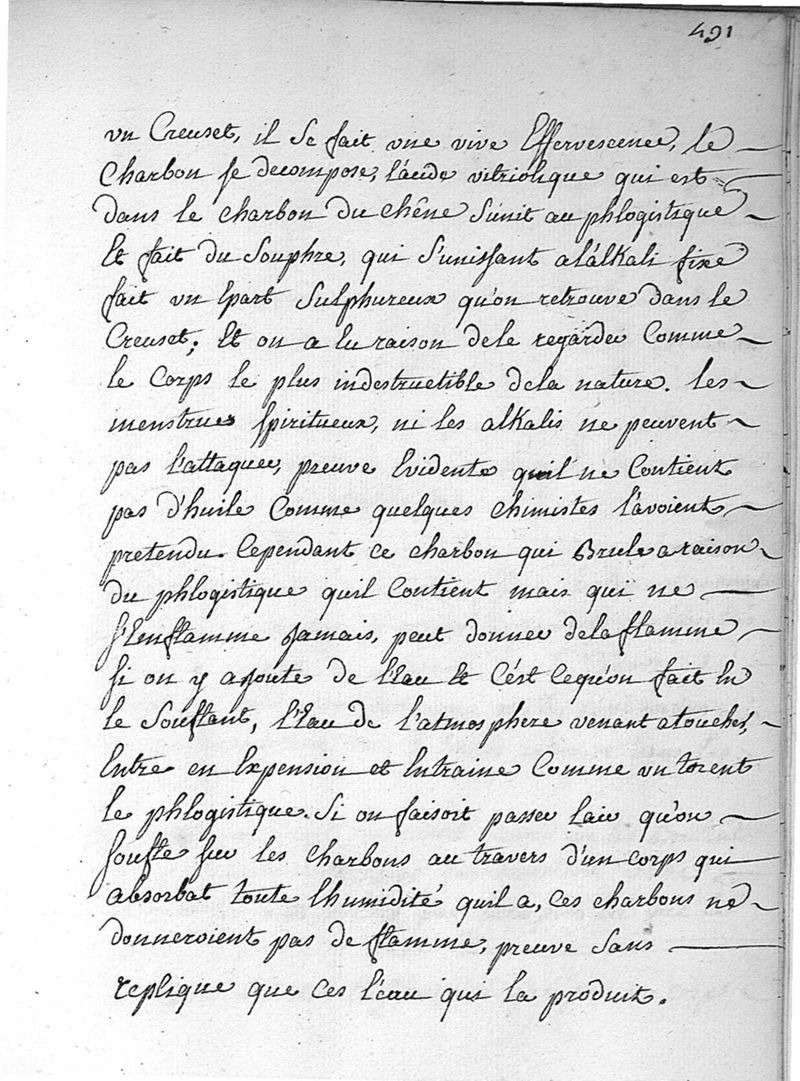 491
un Creuset, il se fait une vive Effervescence, le
Charbon se decompose, l'acide vitriolique qui est
dans le charbon du chêne s'unit au phlogistique
Et fait du Souphre, qui s'unissant a l'alkali fixe
fait un hpart Sulphureux qu'on retrouve dans le
Creuset; Et on a eu raison de le regarder Comme
le Corps le plus indestructible de la nature. les
menstrues spiritueux, ni les alkalis ne peuvent
pas l'attaquer, preuve Evidente quil ne Contient
pas d'huile Comme quelques chimistes l'avoient
pretendu. Cependant ce charbon qui Brule a raison
du phlogistique quil Contient mais qui ne
s'Enflamme Jamais, peut donner de la flamme
si on y ajoute de l'Eau Et C'est Cequ'on fait En
le Souflant, l'Eau de l'atmosphere venant a toucher,
Entre en Expension et Entraine Comme un torent
le phlogistique. Si on faisoit passer l'air qu'on
soufle sur les charbons au travers d'un corps qui
absorbat toute lhumidité quil a, ces charbons ne
donneroient pas de flamme, preuve Sans
replique que ces l'eau qui la produit.